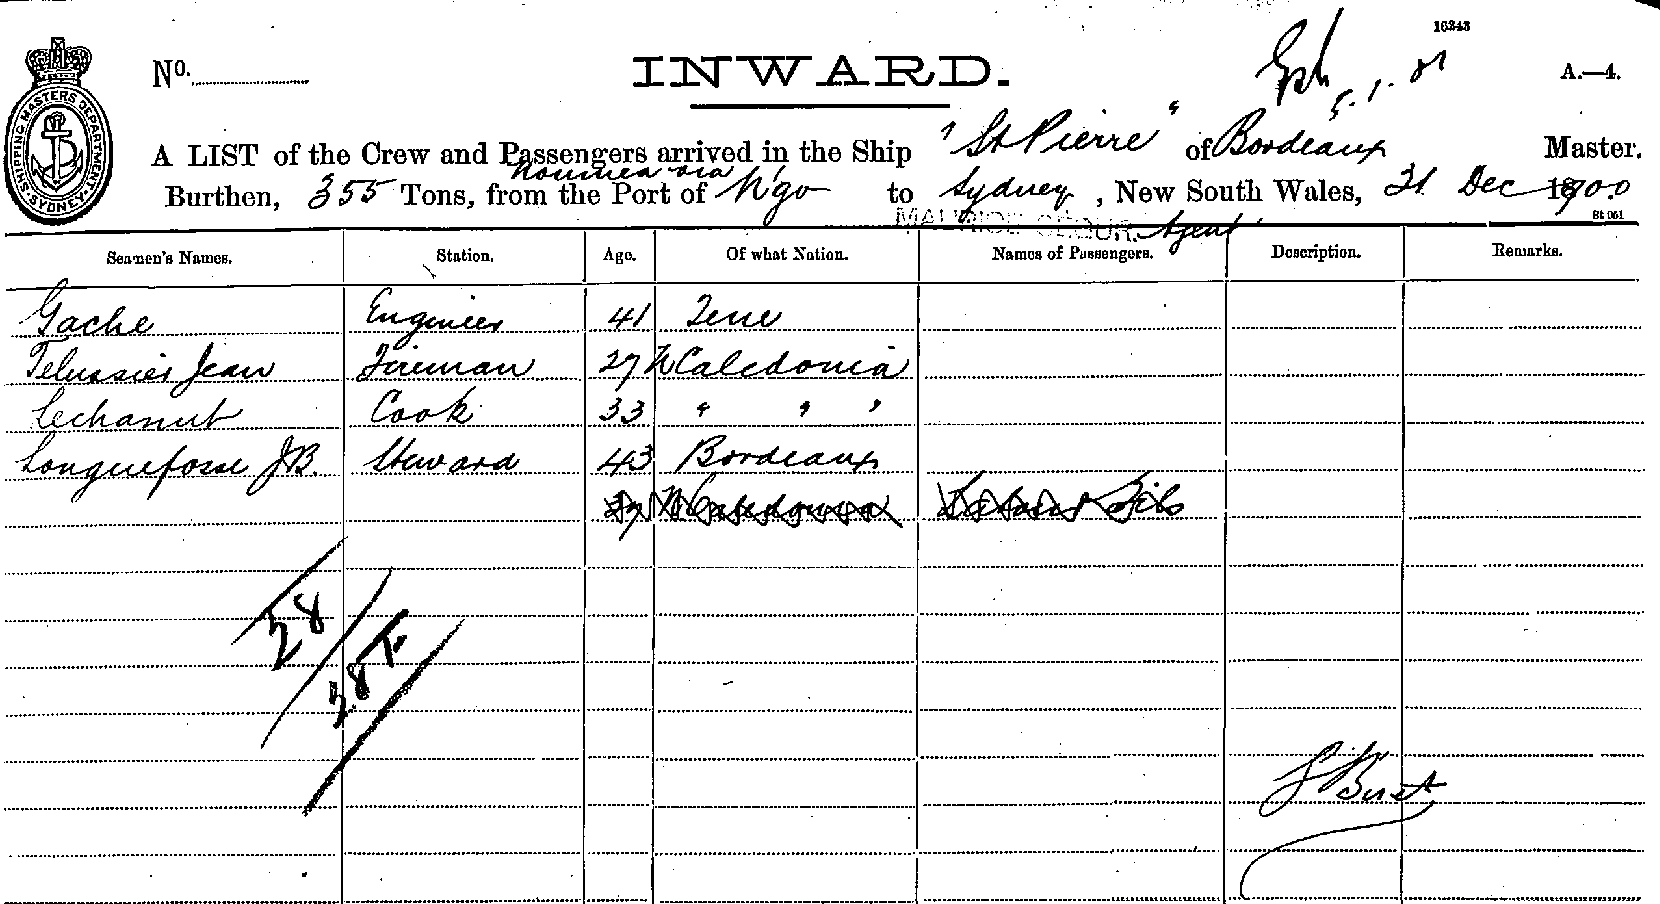 16343
No.
INWARD.
5.1.01
A.—4.
SHIPPING MASTERS DEPARTMENT SYDNEY
A LIST of the Crew and Passengers arrived in the Ship "St Pierre" of Bordeaux Master.
Noumea via
Burthen, 355 Tons, from the Port of N'go to Sydney, New South Wales, 31 Dec 1900
MAURICE SEGUR. Agent
Seamen's Names. Station. Age. Of what Nation. Names of Passengers. Description. Remarks.
Gache Engineer 41
Jean Fireman 27 N Caledonia
Lechanut Cook 33 " " "
Longuefosse JB. Steward 43 Bordeaux
27 N Caledonia Fils
28
28 T.